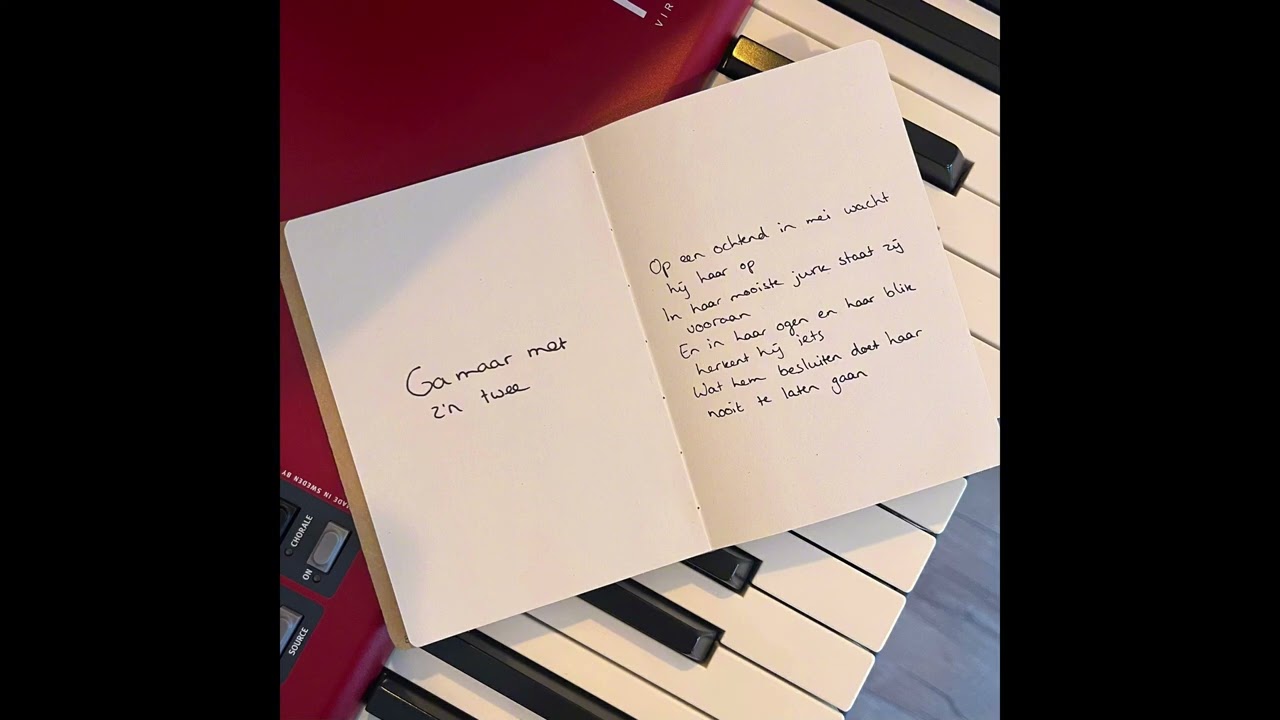 VIR
Ga maar met
z'n twee
Op een ochtend in mei wacht
hij haar op
In haar mooiste jurk staat zij
vooraan
En in haar ogen en haar blik
herkent hij iets
Wat hem besluiten doet haar
nooit te laten gaan
MADE IN SWEDEN BY
CHORALE
ON
SOURCE